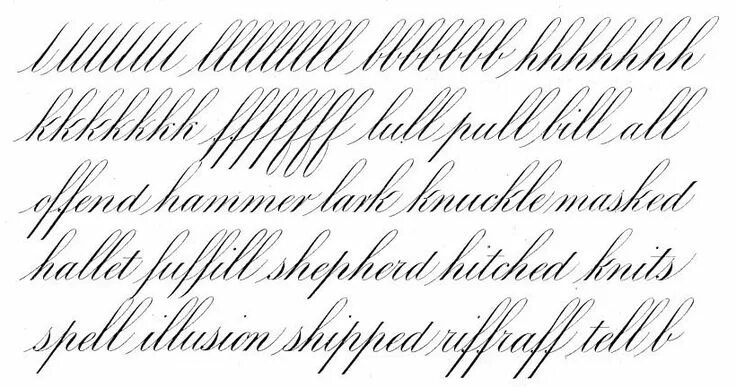 lllllllll bbbbbbb hhhhhhh
kkkkkkk fffffff lull pull bill all
offend hammer lark knuckle masked
hallet fuffill shepherd hitched knits
spell illusion shipped riffraff tell b